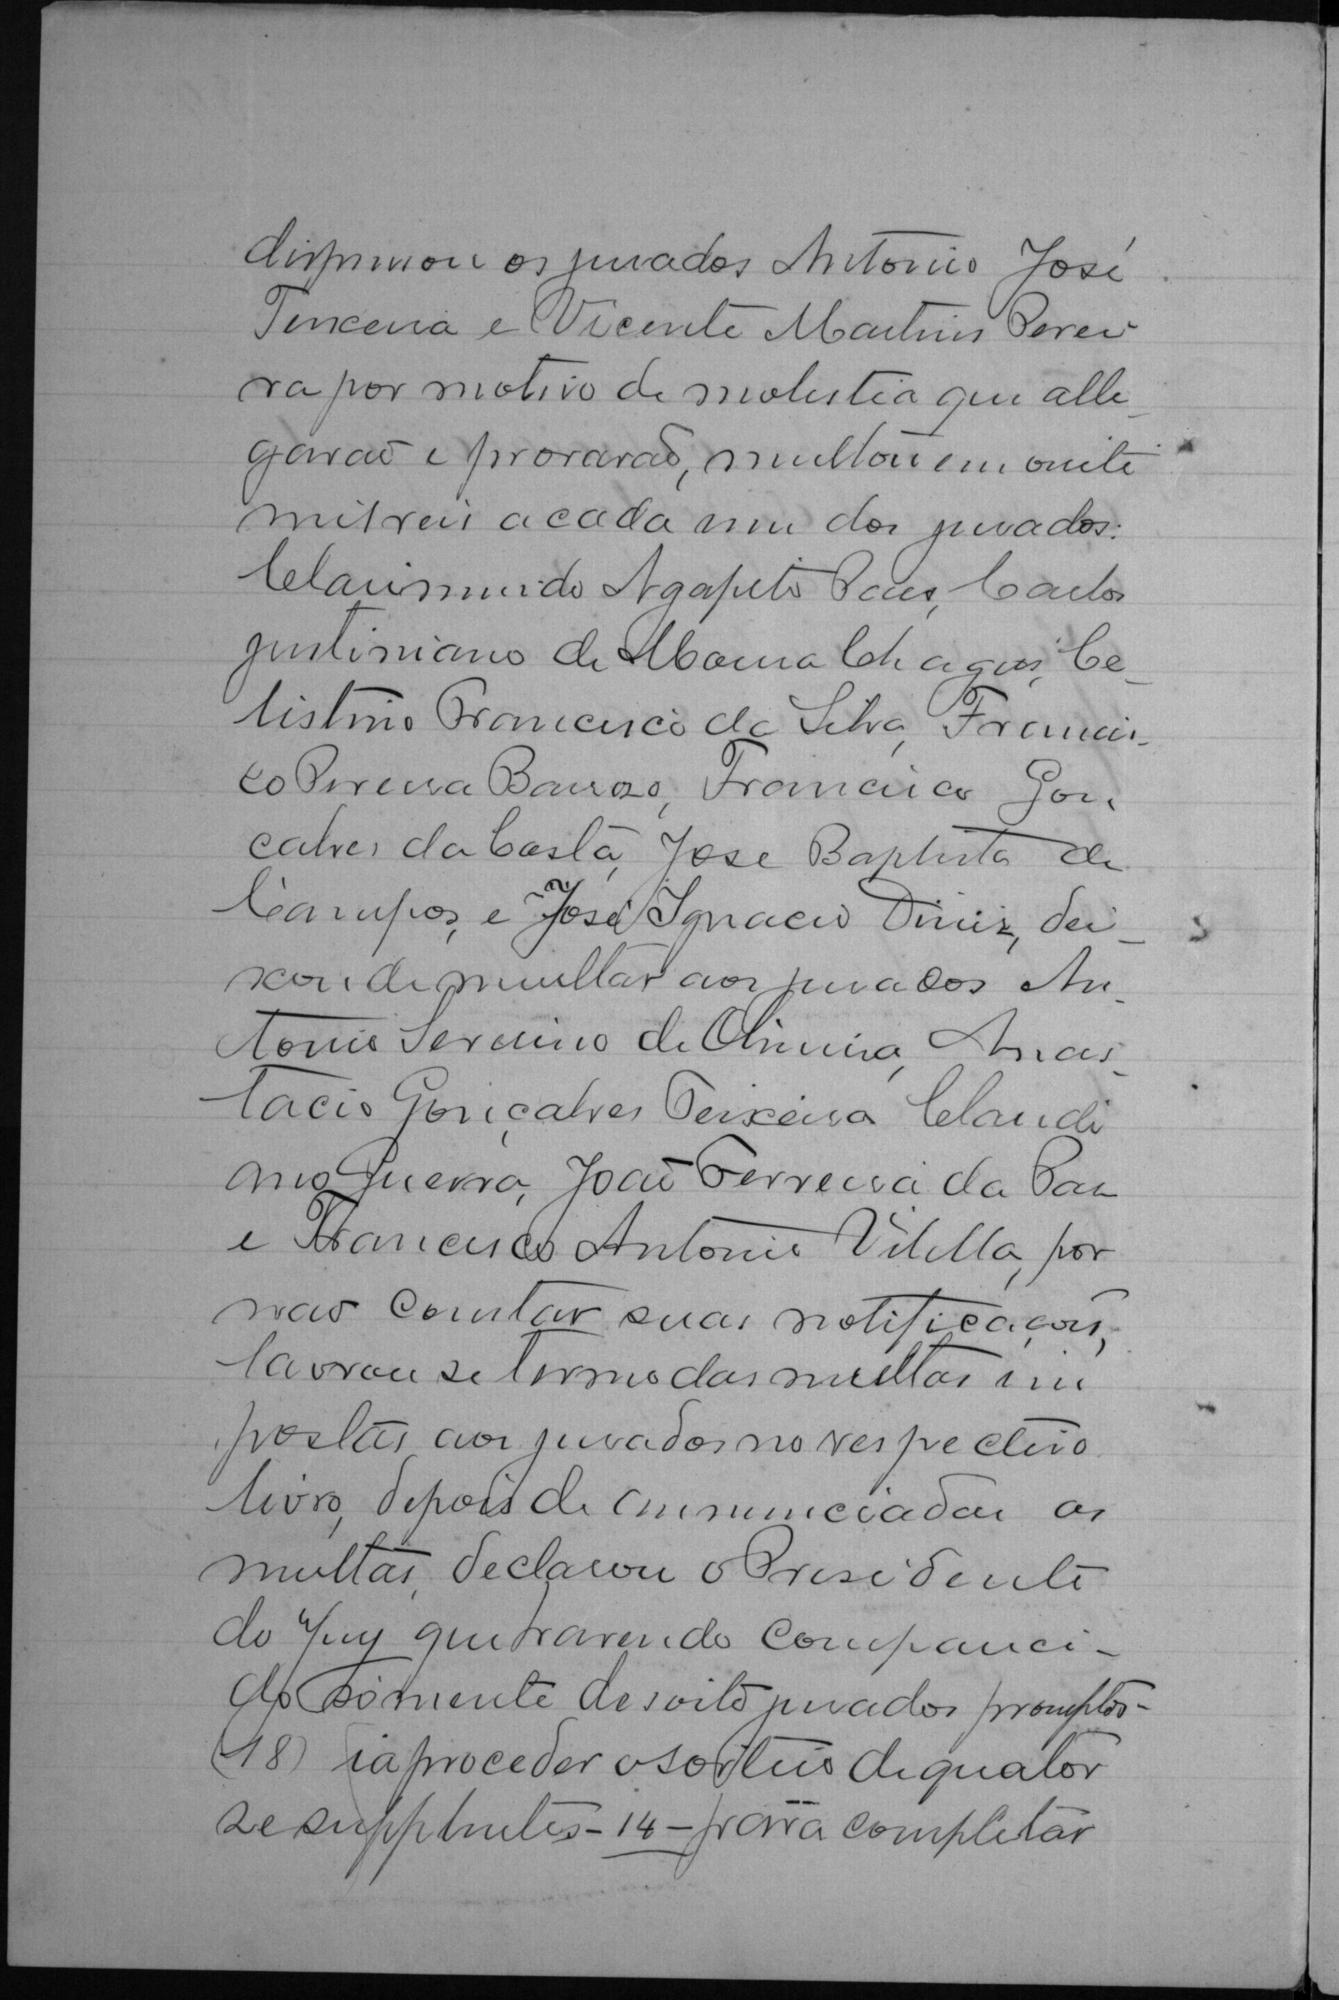 dispensou os jurados Antonio José
Teixeira e Vicente Martins Perei
ra por motivo de molestia que alle_
garaõ e provaraõ, multou em vinte
mil reis a cada um dos jurados:
Clarimundo Agapeto Paes, Carlos
justiniano de Moura Chagas, Ce_
listino Francisco da Silva, Francis_
co Pereira Barrozo, Francisco Gon
çalves da Costa, Jose Baptista de
Campos, e José Ignacio Diniz, dei_
xou de multar aos jurados An_
tonio Severino de Oliveira, Anas_
tacio Gonçalves Teixeira Claudi
ano Guerra, Joaõ Ferreira da Paz
e Francisco Antonio Vilella, por
naõ constar suas notificações,
lavrou se termo das multas im
postas aos jurados no respectivo
livro, depois de annunciadas as
multas, declarou o Presidente
do Jury que havendo compareci_
do sómente desoito jurados promptos-
(18) ia proceder o sorteio de quator
se supplentes-14-para completar